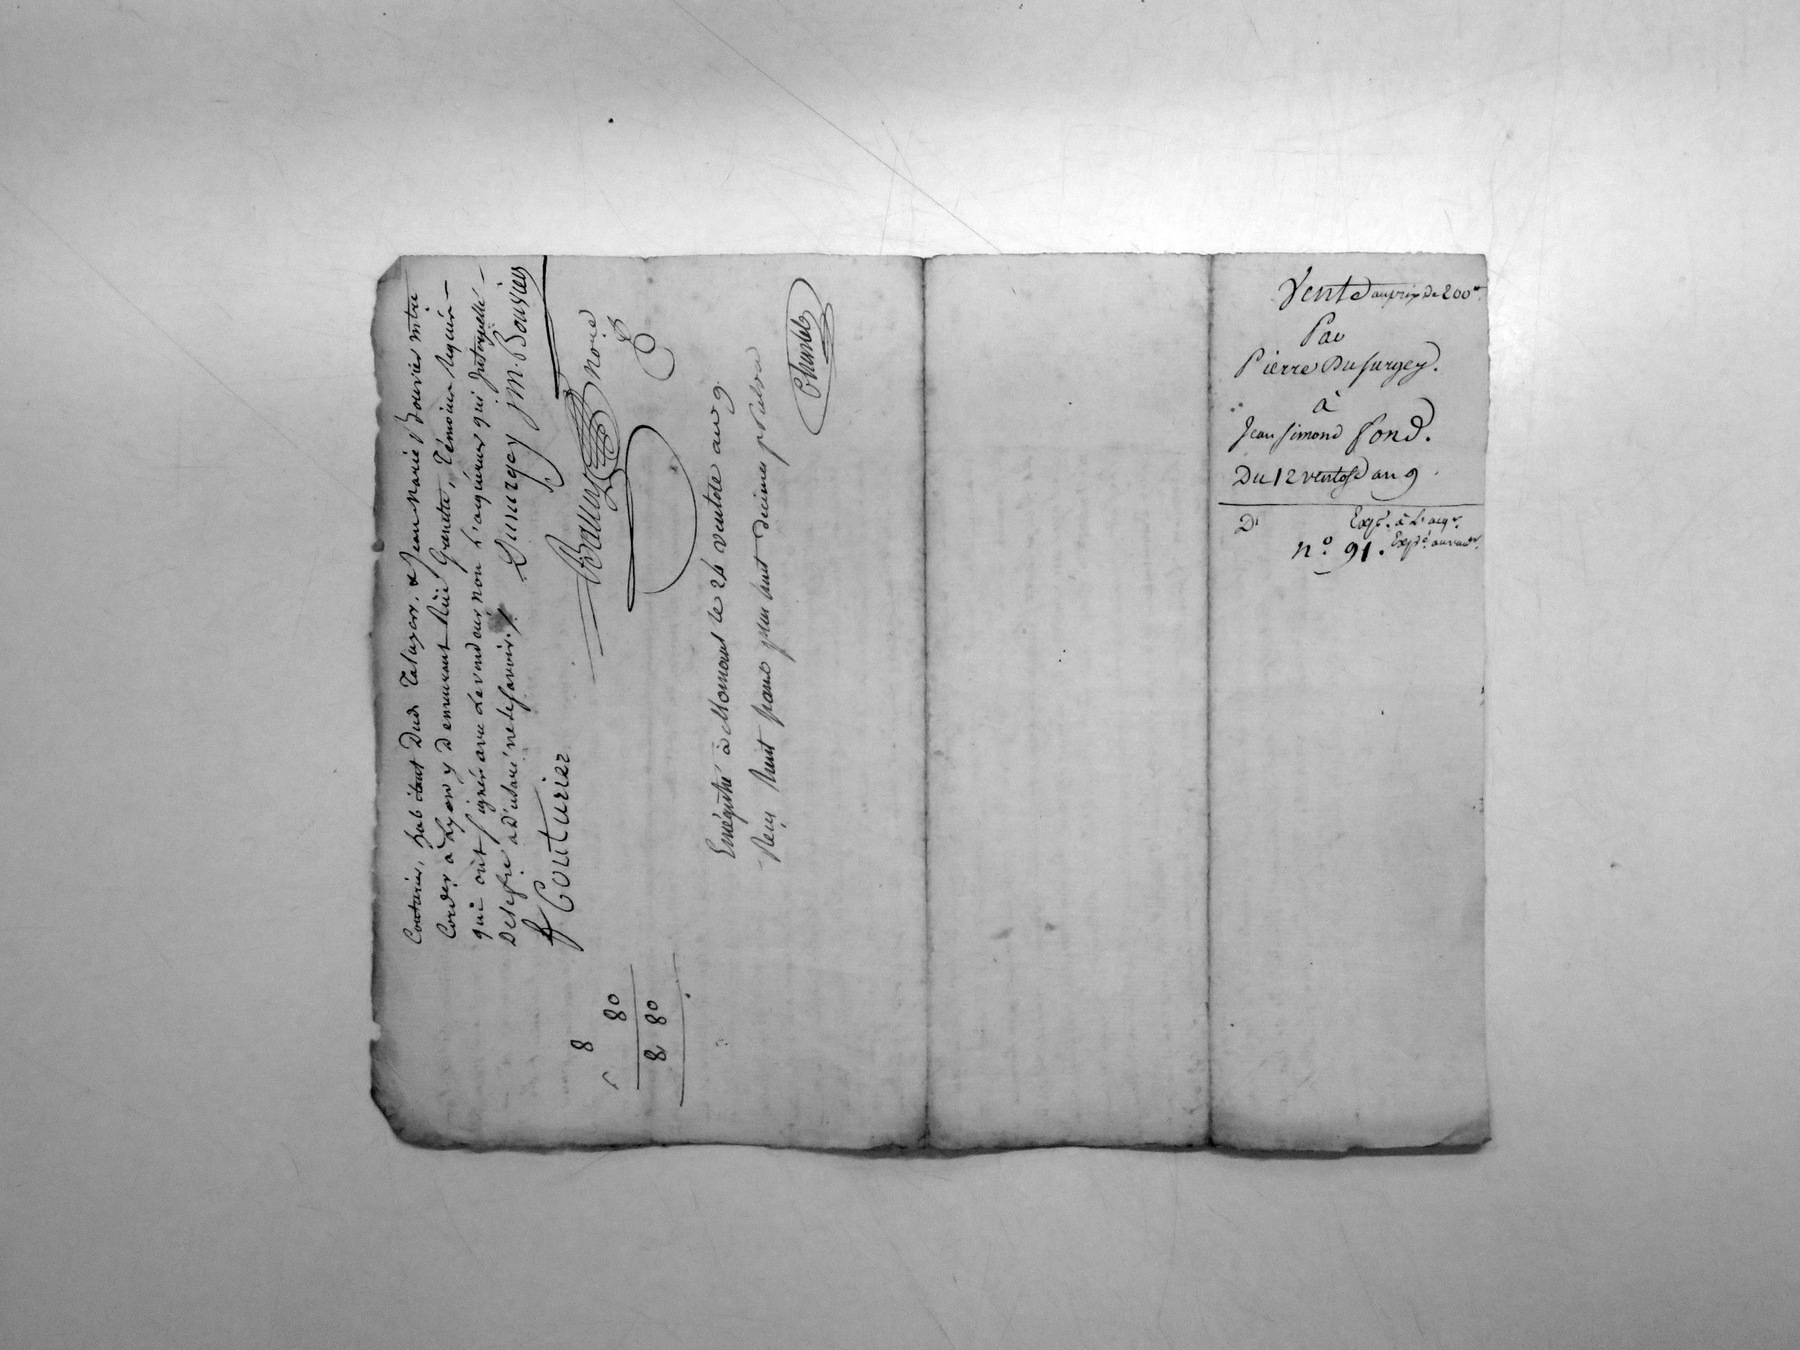 Couturier, habitant Dud. Taluyers, & Jean Marie Bouvier mtre
Cordr. à Lyon y demeurant Rüe Grenette, Témoins requis
qui ont signés avec le vendeur non L'aquéreur qui Interpellé
De le fre a déclaré ne le savoir ./.
Dusurgey JM. Bouvier
Couturier
nore
8
80
8 80
Enregistré à Mornant le 24 ventose an 9
Reçu huit francs plus huit décimes pr subvn
Vente au prix de 200 #
Par
Pierre Dusurgey.
à
Jean Simond Fond.
Du 12 ventose an 9
Dt
Expé. à L'acqr.
n.° 91. Expé. au vendr.